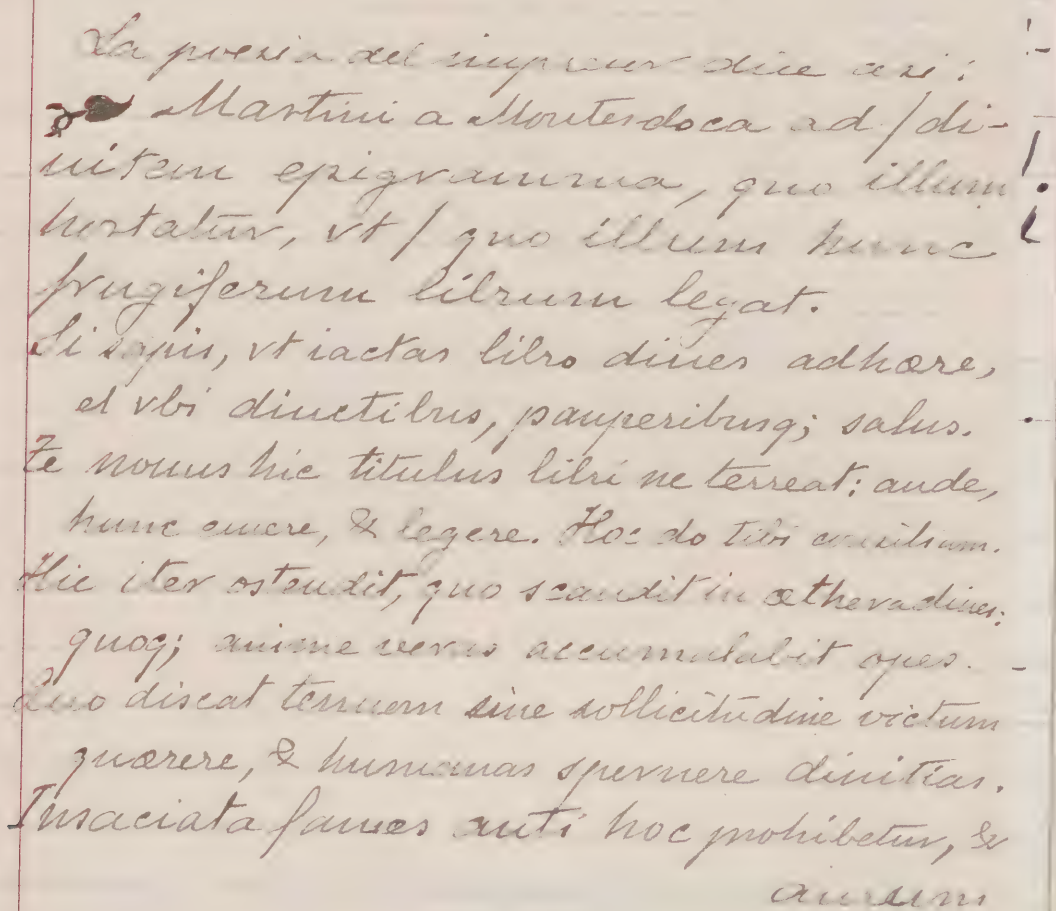 La poesia del impresor dice asi:
Martini a Montesdoca ad / di-
uitem epigramma, quo illum
hortatur, vt / quo illum hunc
frugiferum librum legat.
Si sapis, vt iactas libro diues adhære,
et vbi diuitibus, pauperibusq; salus.
Te nouus hic titulus libri ne terreat: aude,
hunc emere, & legere. Hoc do tibi consilium.
Hic iter ostendit, quo scandit in æthera diues:
quoq; anime veras accumulabit opes.
Quo discat tenuem sine sollicitudine victum
quærere, & humanas spernere diuitias.
Insaciata fames auri hoc prohibetur, &
aurum